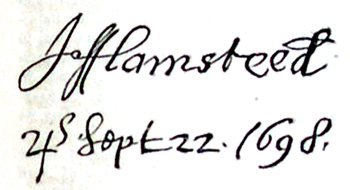 J Flamsteed
♃ˢ Sept 22. 1698.